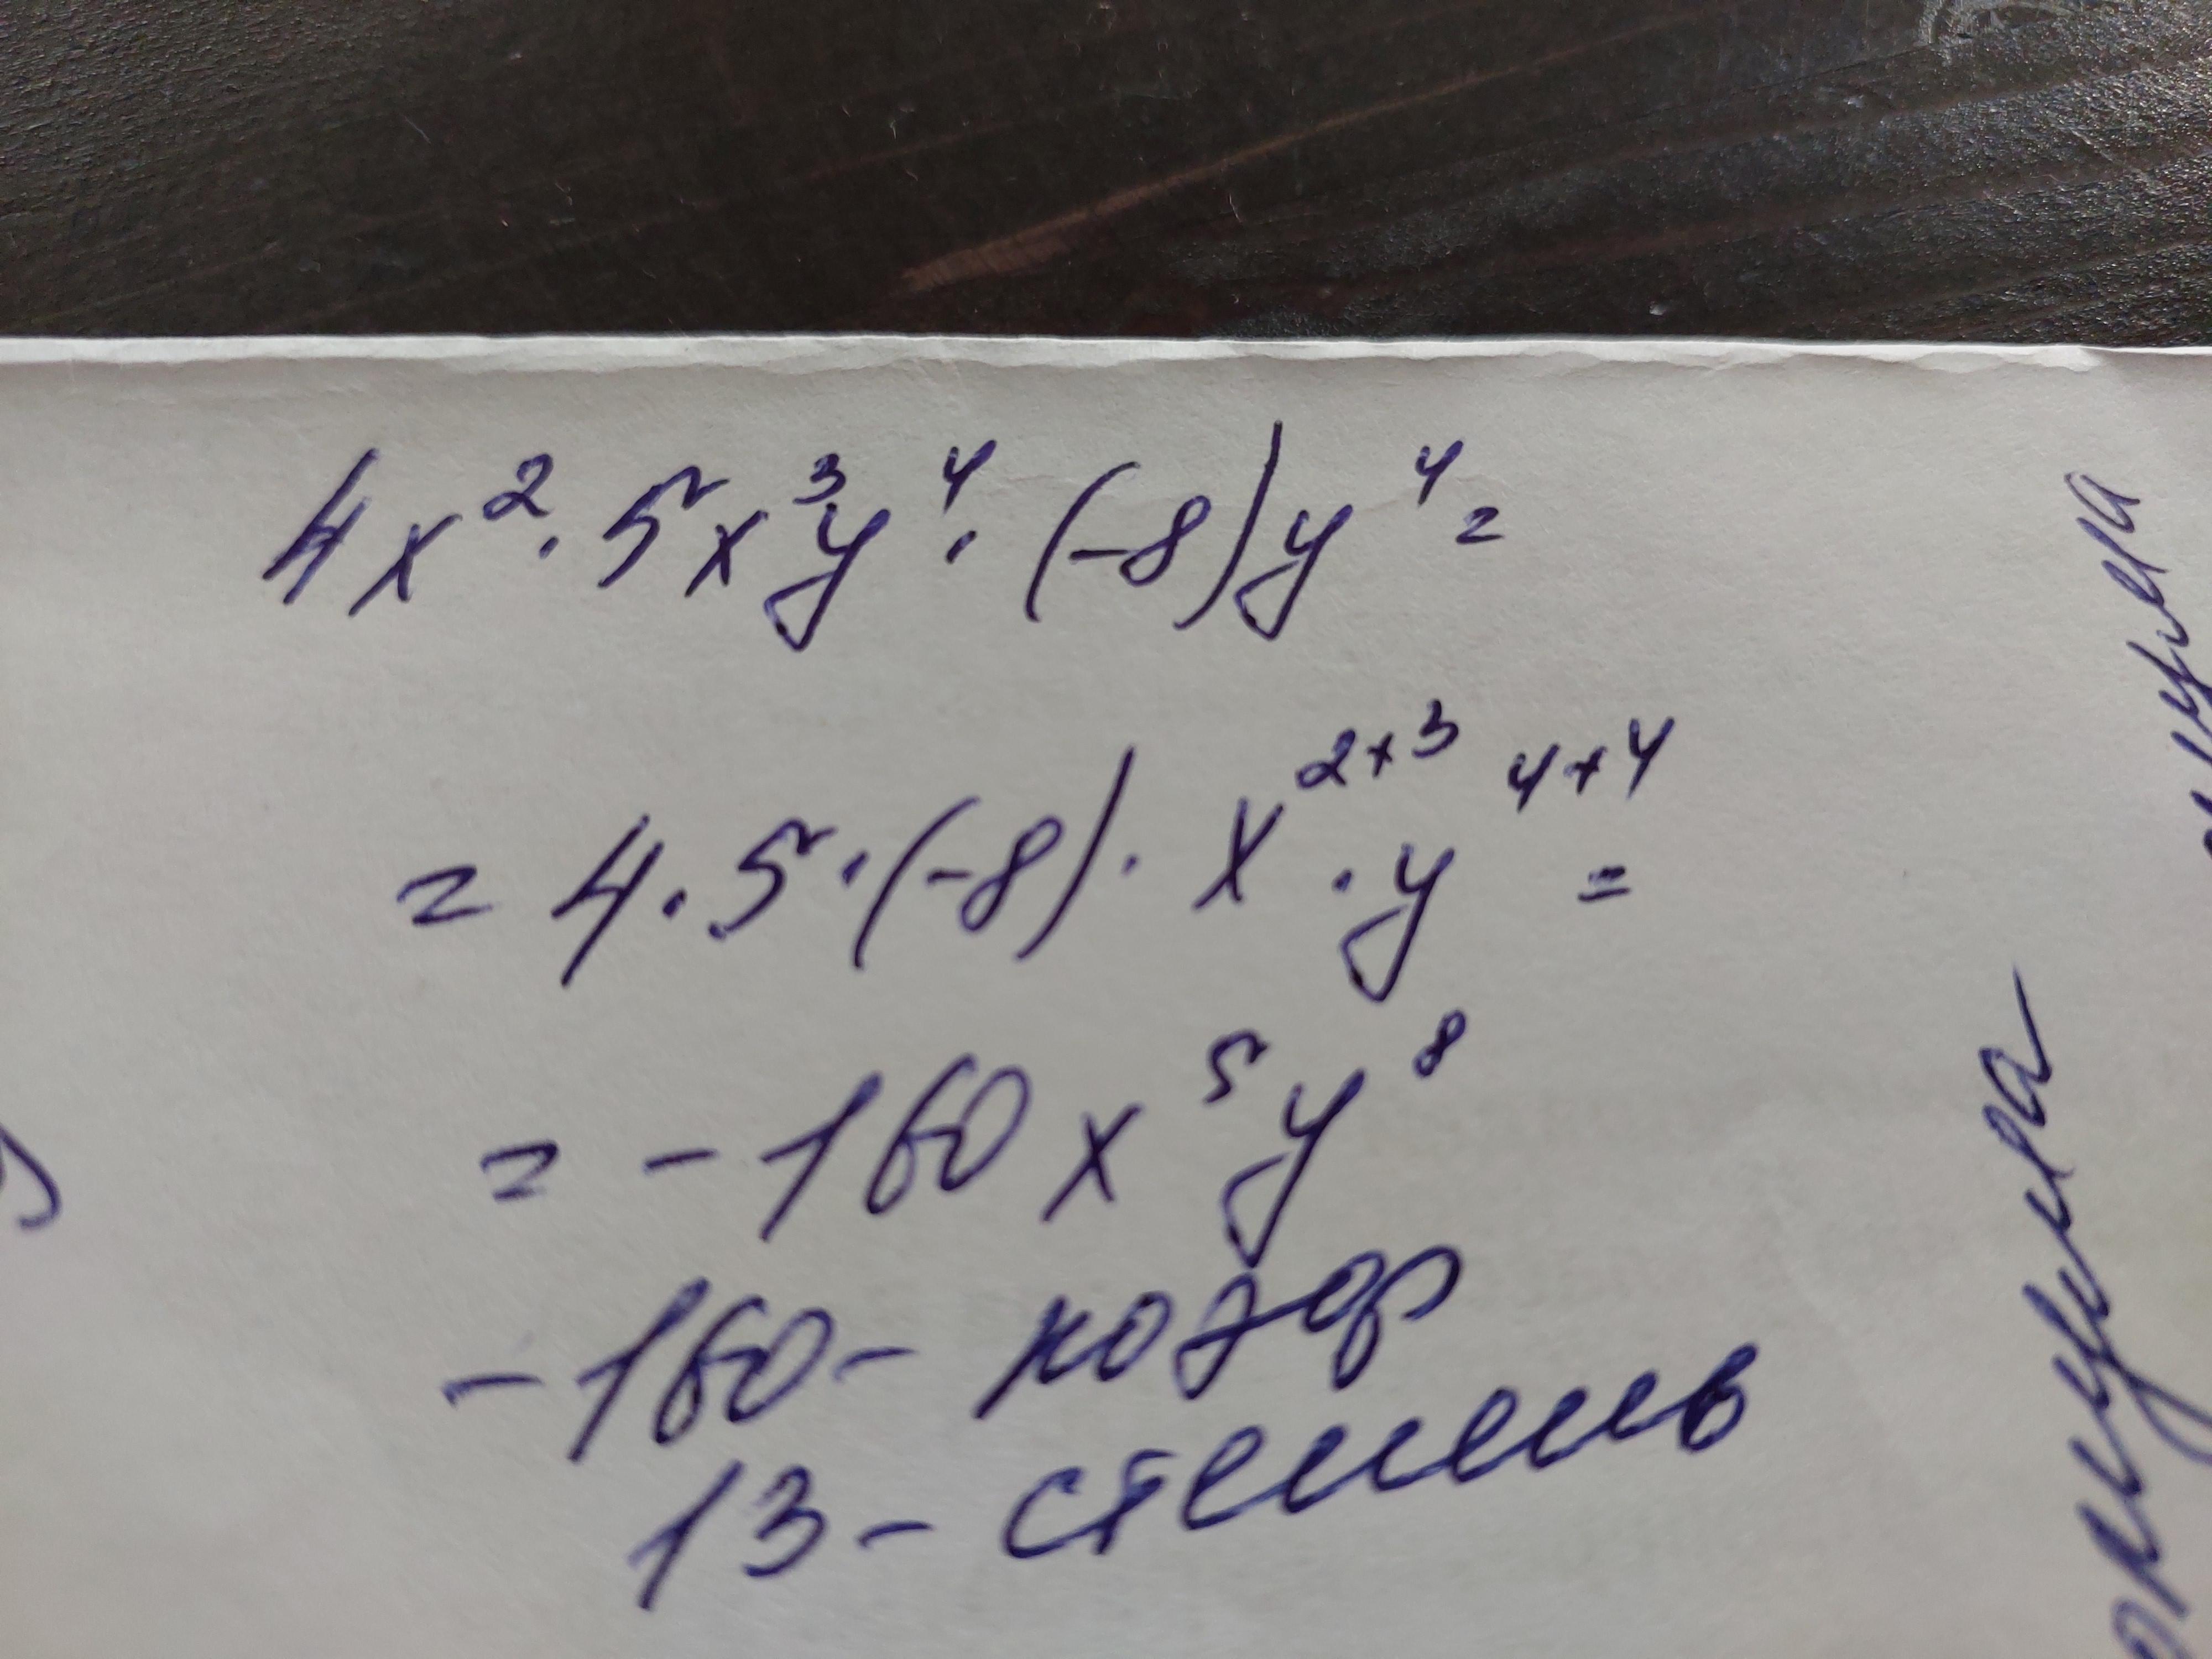 4x²·5x³y⁴·(-8)y⁴=
=4·5·(-8)·x²⁺³·y⁴⁺⁴=
=-160x⁵y⁸
-160- коэф
13- степень